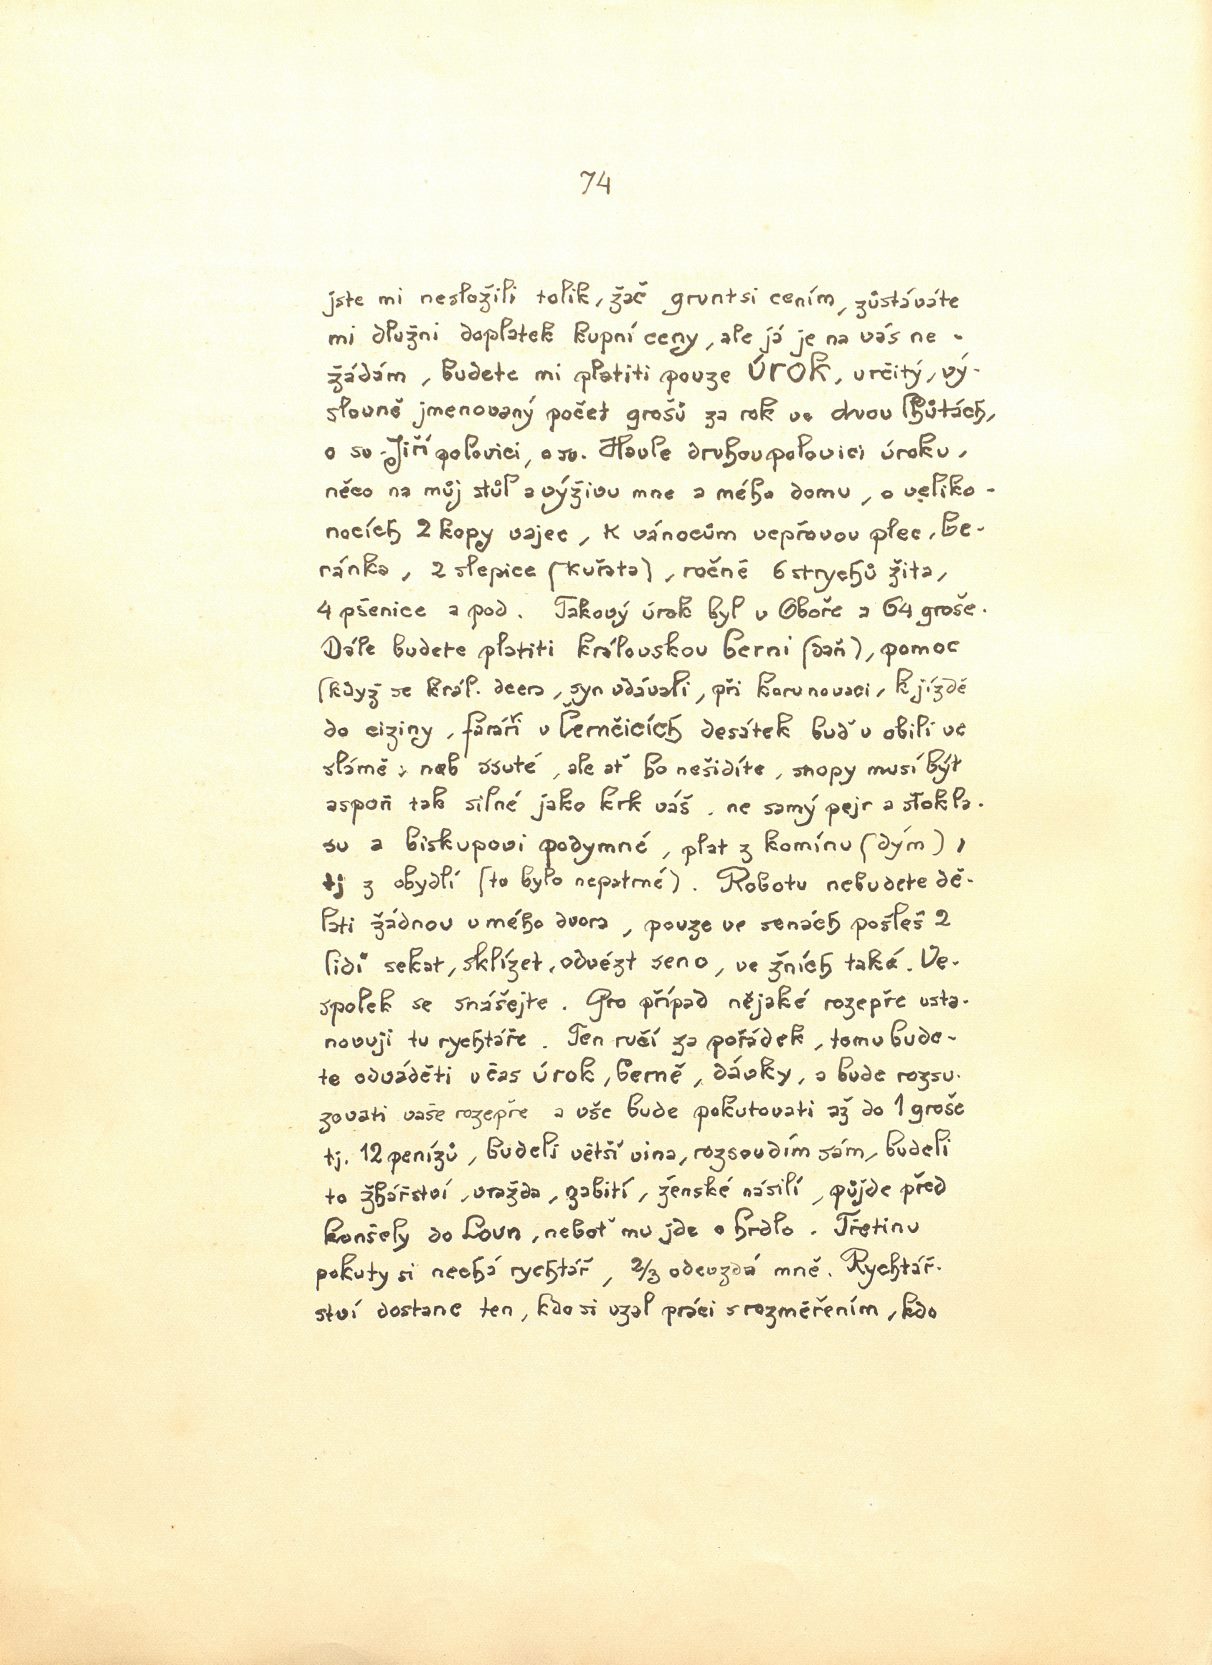 74
jste mi nesložili tolik, žač grunt si cením, zůstáváte
mi dlužni doplatek kupní ceny, ale já je na vás ne-
žádám, budete mi platiti pouze úrok, určitý, vý-
slovně jmenovaný počet grošů za rok ve dvou lhůtách,
o sv. Jiří polovici, o sv. Havle druhou polovici úroku,
něco na můj stůl a výživu mne a mého domu, o veliko-
nocích 2 kopy vajec, k vánocům vepřovou plec, be-
ránka, 2 slepice (kuřata), ročně 6 strychů žita,
4 pšenice a pod. Takový úrok byl v Oboře a 64 groše.
Dále budete platiti královskou berni (daň), pomoc
(když se král. dcera, syn vdávali, při korunovaci, k jízdě
do ciziny, faráři v Černčicích desátek buď v obilí ve
slámě, neb ssuté, ale ať ho nešidíte, snopy musí být
aspoň tak silné jako krk váš. ne samý pejr a stokla-
su a biskupovi podymné, plat z komínu (dým),
tj z obydlí (to bylo nepatrné). Robotu nebudete dě-
lati žádnou u mého dvora, pouze ve senách pošleš 2
lidi sekat, sklízet, odvézt seno, ve žních také. Ve-
spolek se snášejte. Pro případ nějaké rozepře usta-
novuji tu rychtáře. Ten ručí za pořádek, tomu bude-
te odváděti včas úrok, berně, dávky, a bude rozsu-
zovati vaše rozepře a vše bude pokutovati až do 1 groše
tj. 12 penízů, budeli větší vina, rozsoudím sám, budeli
to žhářství, vražda, zabití, ženské násilí, půjde před
konšely do Loun, neboť mu jde o hrdlo. Třetinu
pokuty si nechá rychtář, 2/3 odevzdá mně. Rychtář-
ství dostane ten, kdo si vzal práci s rozměřením, kdo